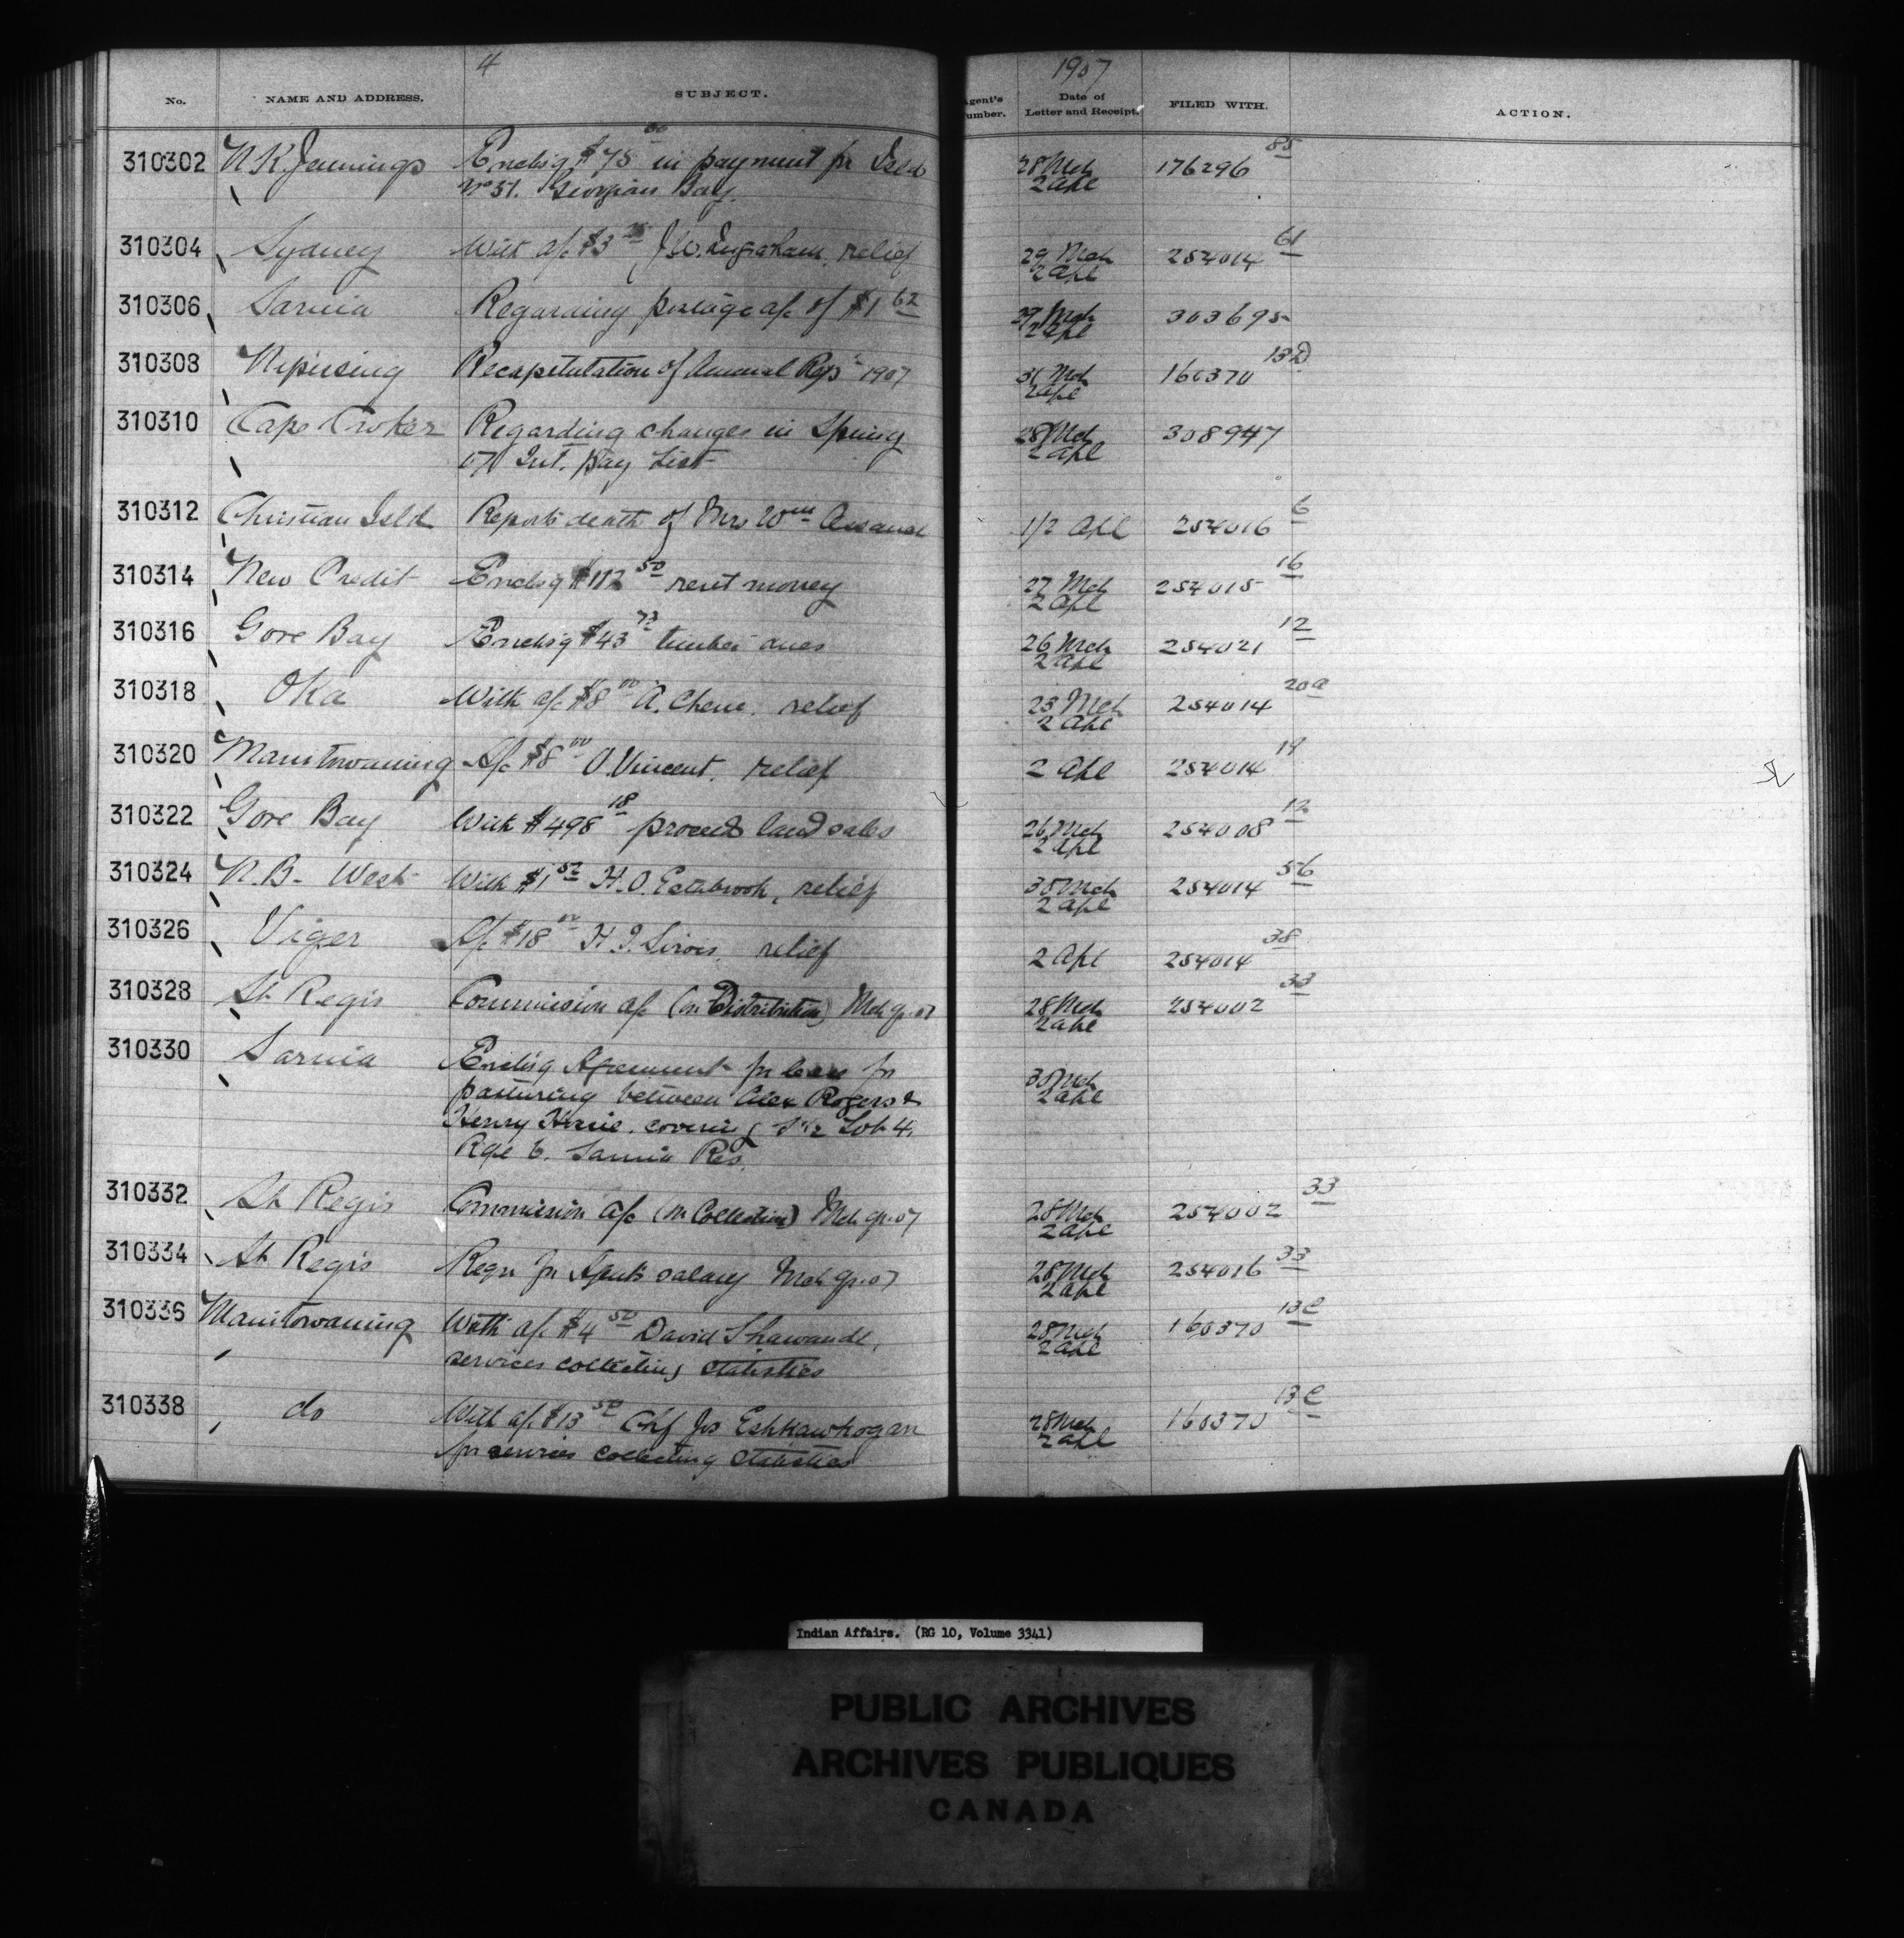 4
1907
No. NAME AND ADDRESS. SUBJECT. Agent's Number. Date of Letter and Receipt. FILED WITH. ACTION.
310302 N K Jennings Enclsg $75 00 in payment for Isld 28 Mch 176296 85
No 51. Georgian Bay. 2 Apl
310304 Sydney With a/c $3 J.W. Ingraham, relief 29 Mch 254014 61
2 Apl
310306 Sarnia Regarding postage a/c of $1 62 29 Mch 303695
2 Apl
310308 Nipissing Recapitulation of Annual Rep 1907 31 Mch 160370 13D
2 Apl
310310 Cape Croker Regarding changes in Spring 28 Mch 308947
07 Int. Pay List 2 Apl
310312 Christian Isld Reports death of Mrs Wm Assance 1/2 Apl 254016 6
310314 New Credit Enclsg $112 50 rent money 27 Mch 254015 16
2 Apl
310316 Gore Bay Enclsg $43 73 timber dues 26 Mch 254021 12
2 Apl
310318 Oka With a/c $8 00 A. Chene, relief 23 Mch 254014 20a
2 Apl
310320 Manitowaning A/c $8 00 O. Vincent, relief 2 Apl 254014 19
310322 Gore Bay With $498 18 proceeds land sales 26 Mch 254008 12
2 Apl
310324 N.B. West With $1 52 H.O. Estabrook, relief 30 Mch 254014 56
2 Apl
310326 Viger A/c $18 00 H.J. Sirois, relief 2 Apl 254014 38
310328 St Regis Commission a/c (on Distribution) Mch qr. 07 28 Mch 254002 33
2 Apl
310330 Sarnia Enclsg Agreement for lease for 30 Mch
pasturing between Alex Rogers & 2 Apl
Henry covering 1/2 Lot 4,
Rge 6. Sarnia Res.
310332 St Regis Commission a/c (on Collection) Mch qr. 07 28 Mch 254002 33
2 Apl
310334 St Regis Reqn for Agents salary Mch qr. 07 28 Mch 254016 33
2 Apl
310336 Manitowaning With a/c $4 50 David Shawande, 28 Mch 160370 13C
services collecting statistics 2 Apl
310338 do With a/c $13 50 Chf Jos Eshkawkogan 28 Mch 160370 13C
for services collecting statistics 2 Apl
Indian Affairs. (RG 10, Volume 3341)
PUBLIC ARCHIVES
ARCHIVES PUBLIQUES
CANADA